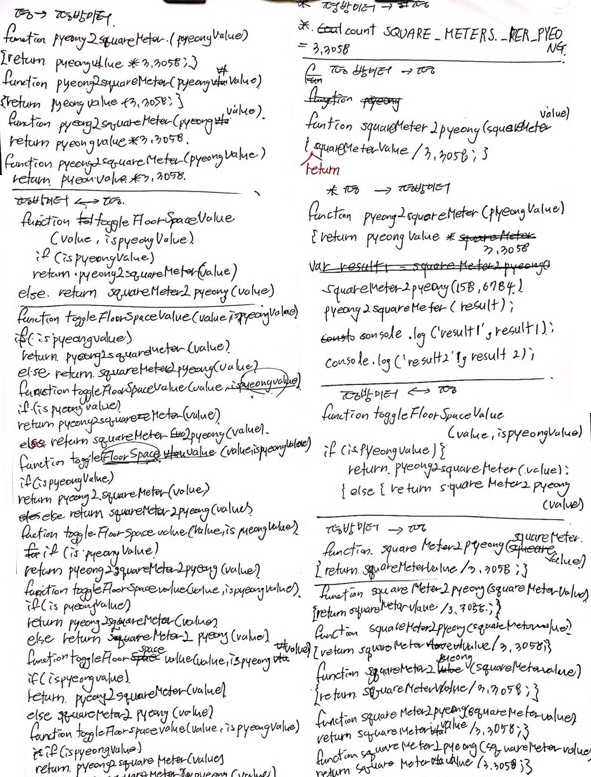 평 → 제곱미터
function pyeong2squareMeter.(pyeongValue)
{return pyeongvalue *3,3058;}
function pyeong2squareMeter(pyeong value)
{return pyeong value *3,3058;}
function pyeong2squareMeter(pyeong value)
return pyeongvalue *3,3058.
function pyeong2squareMeter(pyeongValue)
return pyeonvalue *3,3058.
제곱미터 ↔ 평
function toggleFloorSpaceValue
(value, ispyeongValue)
if (ispyeongvalue)
return pyeong2squareMeter(value)
else. return squareMeter2pyeong (value)
function toggleFloorSpaceValue(value,ispyeongvalue)
if(ispyeongvalue)
return pyeong2squaremeter(value)
else return squareMeter2pyeong(value)
function toggleFloorSpaceValue(value, ispyeongvalue)
if(ispyeongvalue)
return pyeong2squareMeter(value)
else return squareMeter2pyeong(value).
function toggleFloorSpace value (valueispyeongvalue)
if(ispyeongvalue)
return pyeong2squareMeter(value)
else return squareMeter2pyeong(value)
function toggleFloorSpace value(value,is pyeongvalue)
if (ispyeongvalue)
return pyeong2squareMeter2pyeong(value)
function toggleFloorSpacevalue(value,ispyeongvalue)
if(is pyeongvalue)
return pyeong2squareMeter(value)
else return squareMeter2 pyeong (value)
function toggleFloorspace value(value, ispyeong value)
if(ispyeongvalue)
return pyeong2squareMeter(value)
else squareMeter2 pyeong (value)
function toggleFloorspacevalue(value, ispyeongvalue)
if(ispyeongvalue)
return pyeong2squareMeter(value)
* 제곱미터 → 평
*. count SQUARE_METERS_PER_PYEO
NG.
= 3,3058
제곱미터 → 평
function pyeong
funtion squareMeter2pyeong(squareMeter
value)
{squareMeterValue /3,3058;}
return
* 평 → 제곱미터
function pyeong2squareMeter(pyeongValue)
{return pyeongValue * squareMeter
3,3058
var result1 = squareMeter2pyeong
squareMeter2pyeong(158,6784)
pyeong2squareMeter(result);
const console.log('result1',result1);
console.log('result2', result2);
제곱미터 ↔ 평
function toggleFloorSpaceValue
(value, ispyeongvalue)
if (isPyeongvalue){
return pyeong2squareMeter(value);
}else{ return squareMeter2pyeong
(value)
제곱미터 → 평
squareMeter
function. squareMeter2pyeong(square value)
{return squareMeterValue /3,3058;}
function squareMeter2pyeong(squareMeterValue)
{return squareMetervalue /3,3058;}
function squareMeter2pyeong(squareMetervalue)
{return squareMetervalue/3,3058;}
pyeong
function squareMeter2 (squareMetervalue)
{return squareMetervalue /3,3058;}
function squareMeter2pyeong(squareMetervalue)
return squareMeter value /3,3058;}
function squareMeter2pyeong(squareMetervalue)
return squareMetervalue /3,3058;}